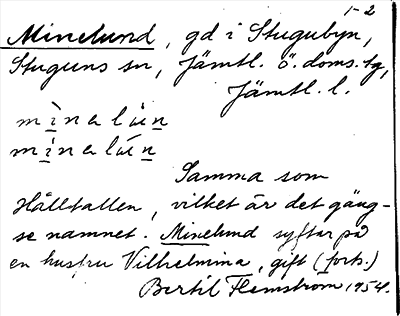 1-2
Minelund, gd i Stugubyn,
Stuguns sn, Jämtl. ö. doms. tg,
Jämtl. l.
mìnalún
mìnalún
Samma som
Hålltallen, vilket är det gäng-
se namnet. Minelund syftar på
en hustru Vilhelmina, gift (forts.)
Bertil Flemström 1954.